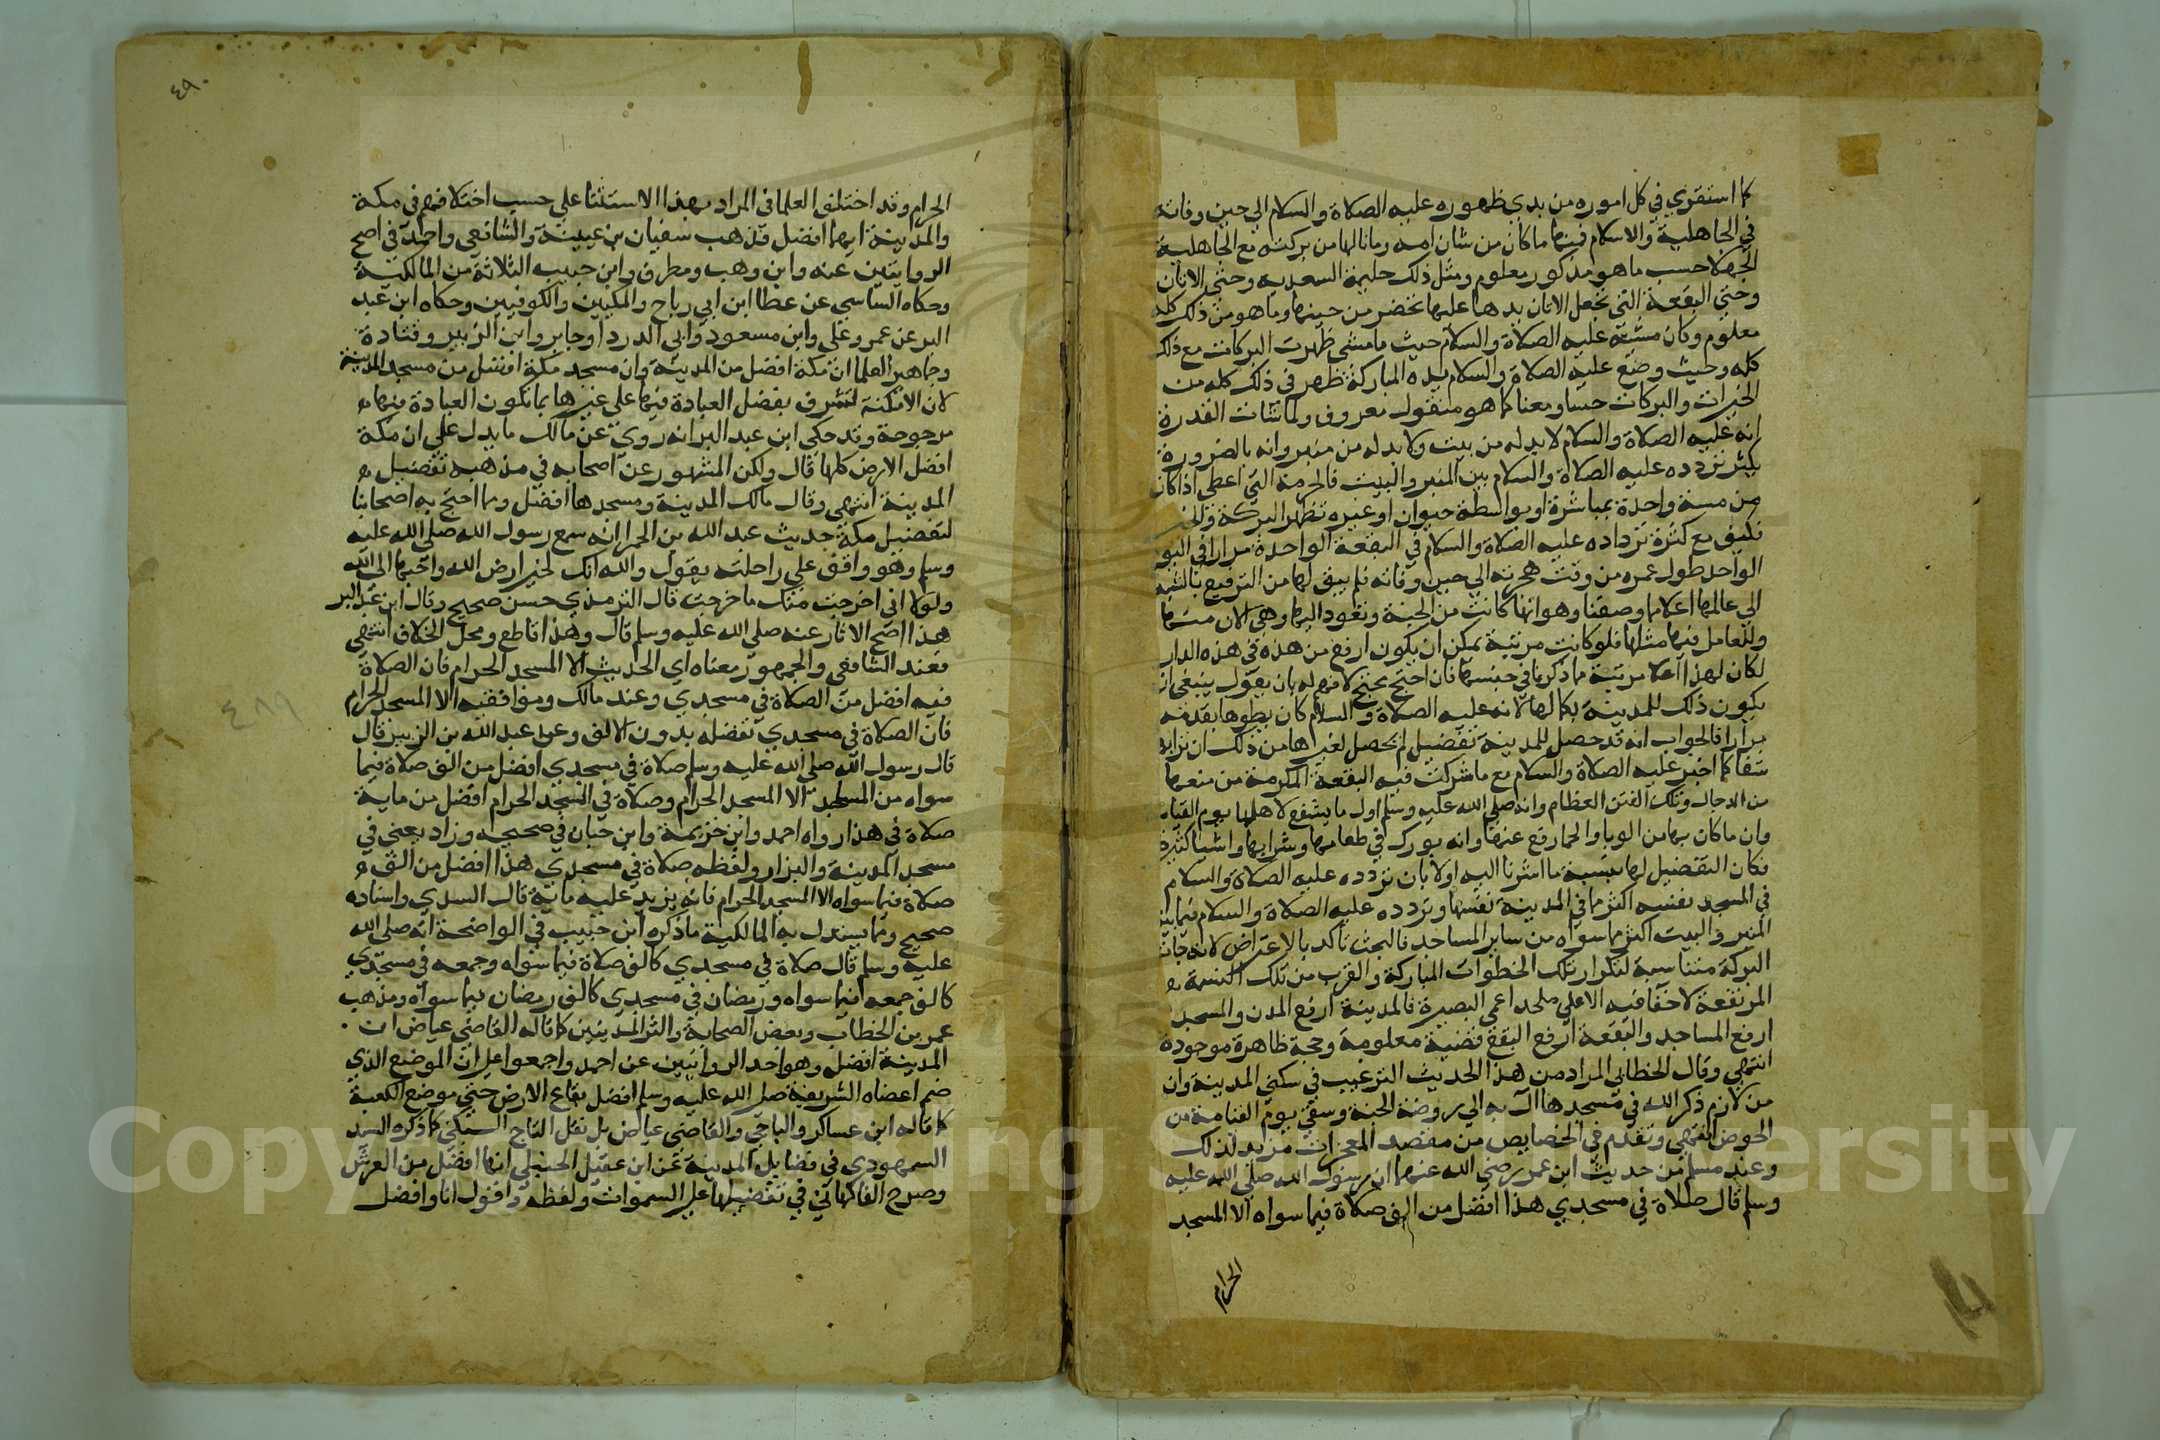 كما استقري في كل اموره من بدي ظهوره عليه الصلاة والسلام الي حين وفاته
في الجاهلية والاسلام فمنها ما كان من شان امه وما نالها من بركته مع الجاهلية
الجهلا حسب ما هو مذكور معلوم ومثل ذلك حليمة السعديه وحتي الاتان
وحتي البقعة التي تجعل الاتان يدها عليها تخضر من حينها وما هو من ذلك كله
معلوم وكان مشيه عليه الصلاة والسلام حيث ما مشي ظهرت البركات مع ذلك
كله وحيث وضع عليه الصلاة والسلام يده المباركة ظهر في ذلك كله من
الخيرات والبركات حسا ومعنا كما هو منقول معروف ولما شات القدرة
انه عليه الصلاة والسلام لا بد له من بيت ولا بد له من منبر وانه بالضرورة
يكثر تردده عليه الصلاة والسلام بين المنبر والبيت فالحرمة التي اعطي اذا كان
من مسة واحدة بمباشرة او بواسطة حيوان او غيره تظهر البركة والخير
فكيف مع كثرة ترداده عليه الصلاة والسلام في البقعة الواحدة مرارا في اليوم
الواحد طول عمره من وقت هجرته الي حين وفاته فلم يبق لها من الترفيع بالنسبة
الي عالمها اعلا مما وصفنا وهو انها كانت من الجنة وتعود اليها وهي الان منها
وللعامل فيها مثلها فلو كانت مرتبة يمكن ان يكون ارفع من هذه في هذه الدار
لكان لهذا اعلا مرتبة مما ذكرنا في جنسها فان احتج محتج لا فهم له بان يقول ينبغي ان
يكون ذلك للمدينة بكمالها لانه عليه الصلاة والسلام كان يطوها بقدمه
مرارا فالجواب انه قد حصل للمدينة تفضيل لم يحصل لغيرها من ذلك ان ترابها
شفا كما اخبر عليه الصلاة والسلام مع ما شركت فيه البقعة المكرمة من منعها
من الدجال وتلك الفتن العظام وانه صلي الله عليه وسلم اول ما يشفع لاهلها يوم القيامة
وان ما كان بها من الوبا والحما رفع عنها وانه بورك في طعامها وشرابها واشيا كثيرة
فكان التفضيل لها بنسبة ما اشرنا اليه اولا بان تردده عليه الصلاة والسلام
في المسجد نفسه اكثر مما في المدينة نفسها وتردده عليه الصلاة والسلام فيما بين
المنبر والبيت اكثر مما سواه من ساير المساجد فالبحث تأكد بالاعتراض لانه جات
البركة متناسبة لتكرار تلك الخطوات المباركة والقرب من تلك النسمة
المرتفعة لا خفا فيه الا علي ملحد اعمي البصيرة فالمدينة ارفع المدن والمسجد
ارفع المساجد والبقعة ارفع البقع قضية معلومة وحجة ظاهرة موجودة
انتهي وقال الخطابي المراد من هذا الحديث الترغيب في سكني المدينة وان
من لازم ذكر الله في مسجدها آل به الي روضة الجنة وسقي يوم القيامة من
الحوض انتهي وتقدم في الخصايص من مقصد المعجزات مزيد لذلك
وعند مسلم من حديث ابن عمر رضي الله عنهما ان رسول الله صلي الله عليه
وسلم قال صلاة في مسجدي هذا افضل من الف صلاة فيما سواه الا المسجد
الحرام
٤٩٠
الحرام وقد اختلف العلما في المراد بهذا الاستثنا علي حسب اختلافهم في مكة
والمدينة ايهما افضل فذهب سفيان بن عيينة والشافعي واحمد في اصح
الروايتين عنه وابن وهب ومطرف وابن حبيب الثلاثة من المالكية
وحكاه الساجي عن عطا ابن ابي رباح والمكيين والكوفيين وحكاه ابن عبد
البر عن عمر وعلي وابن مسعود وابي الدردا وجابر وابن الزبير وقتادة
وجماهير العلما ان مكة افضل من المدينة وان مسجد مكة افضل من مسجد المدينة
لان الامكنة تشرف بفضل العبادة فيها علي غيرها مما تكون العبادة فيها
مرجوحة وقد حكي ابن عبد البر انه روي عن مالك ما يدل علي ان مكة
افضل الارض كلها قال ولكن المشهور عن اصحابه في مذهبه تفضيل
المدينة انتهي وقال مالك المدينة ومسجدها افضل ومما احتج به اصحابنا
لتفضيل مكة حديث عبد الله بن الحمرا انه سمع رسول الله صلي الله عليه
وسلم وهو واقف علي راحلته يقول والله انك لخير ارض الله واحبها الي الله
ولولا اني اخرجت منك ما خرجت قال الترمذي حسن صحيح وقال ابن عبد البر
هذا اصح الاثار عنه صلي الله عليه وسلم قال وهذا قاطع ومحل الخلاف انتهي
فعند الشافعي والجمهور معناه اي الحديث الا المسجد الحرام فان الصلاة
فيه افضل من الصلاة في مسجدي وعند مالك وموافقيه الا المسجد الحرام
فان الصلاة في مسجدي تفضله بدون الالف وعن عبد الله بن الزبير قال
قال رسول الله صلي الله عليه وسلم صلاة في مسجدي افضل من الف صلاة فيما
سواه من المساجد الا المسجد الحرام وصلاة في المسجد الحرام افضل من ماية
صلاة في هذا رواه احمد وابن خزيمة وابن حبان في صحيحه وزاد يعني في
مسجد المدينة والبزار ولفظه صلاة في مسجدي هذا افضل من الف
صلاة فيما سواه الا المسجد الحرام فانه يزيد عليه ماية قال السدي واسناده
صحيح ومما يستدل به المالكية ما ذكره ابن حبيب في الواضحة انه صلي الله
عليه وسلم قال صلاة في مسجدي كالف صلاة فيما سواه وجمعه في مسجدي
كالف جمعه فيما سواه ورمضان في مسجدي كالف رمضان فيما سواه ومذهب
عمر بن الخطاب وبعض الصحابة واكثر المدنيين كما قاله القاضي عياض ان
المدينة افضل وهو احد الروايتين عن احمد واجمعوا علي ان الموضع الذي
ضم اعضاه الشريفة صلي الله عليه وسلم افضل بقاع الارض حتي موضع الكعبة
كما قاله ابن عساكر والباجي والقاضي عياض بل نقل التاج السبكي كما ذكره السيد
السمهودي في فضايل المدينة عن ابن عقيل الحنبلي انها افضل من العرش
وصرح الفاكهاني في تفضيلها علي السموات ولفظه واقول انا وافضل
٤٨٩